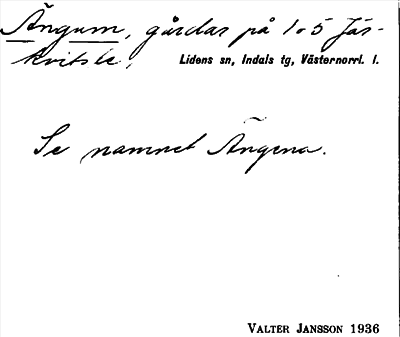 Ängum, gårdar på 1o5 Jär-
kvitsle, Lidens sn, Indals tg, Västernorrl. l.
Se namnet Ängena.
VALTER JANSSON 1936